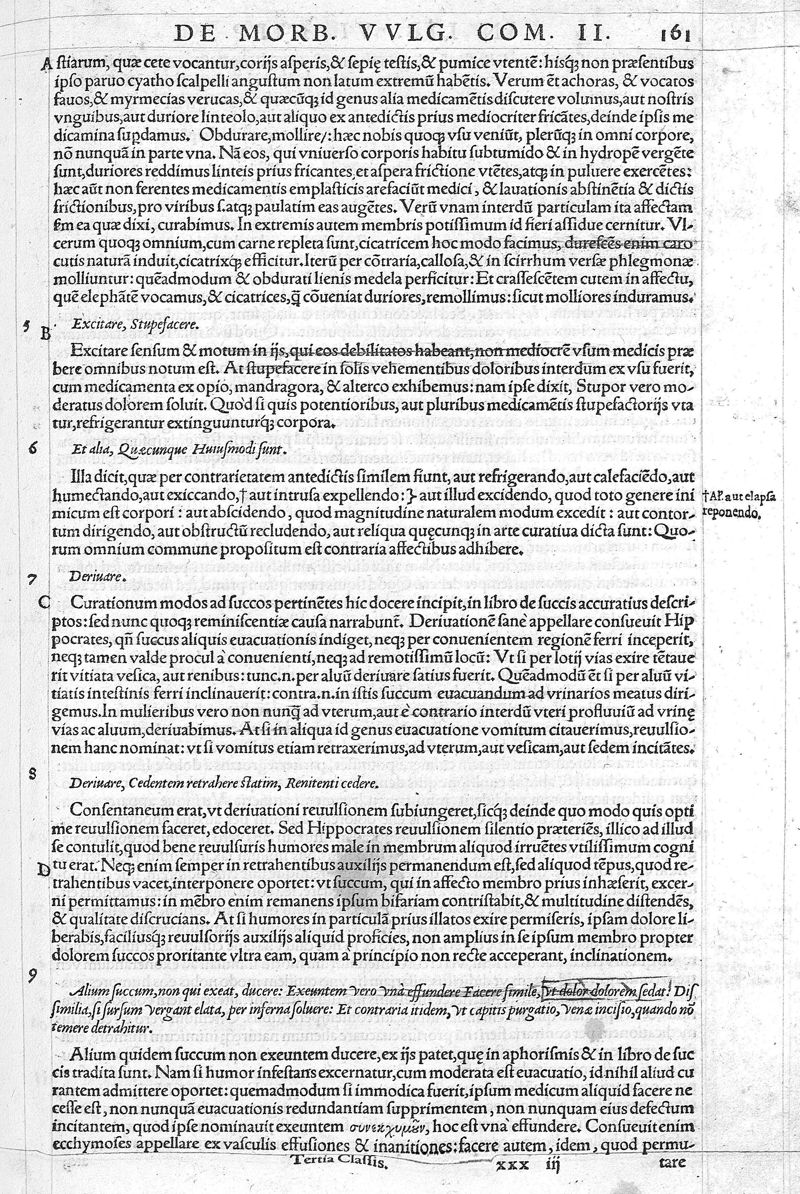 DE MORB. VVLG. COM. II. 161
A stiarum, quæ cete vocantur, corijs asperis, & sepię testis, & pumice vtentē: hisq; non præsentibus
ipso paruo cyatho scalpelli angustum non latum extremū habētis. Verum ēt achoras, & vocatos
fauos, & myrmecias verucas, & quæcūq; id genus alia medicamētis discutere volumus, aut nostris
vnguibus, aut duriore linteolo, aut aliquo ex antedictis prius mediocriter fricātes, deinde ipsis me
dicamina supdamus. Obdurare, mollire/: hæc nobis quoq; vsu veniūt, plerūq; in omni corpore,
nō nunquā in parte vna. Nā eos, qui vniuerso corporis habitu subtumido & in hydropē vergēte
sunt, duriores reddimus linteis prius fricantes, et aspera frictione vtētes, atq; in puluere exercētes:
hæc aūt non ferentes medicamentis emplasticis arefaciūt medici, & lauationis abstinētia & dictis
frictionibus, pro viribus s. atq; paulatim eas augētes. Verū vnam interdū particulam ita affectam
fm ea quæ dixi, curabimus. In extremis autem membris potissimum id fieri assidue cernitur. Vl-
cerum quoq; omnium, cum carne repleta sunt, cicatricem hoc modo facimus, durescēs enim caro
cutis naturā induit, cicatrixq; efficitur. Iterū per cōtraria, callosa, & in scirrhum versæ phlegmonæ
molliuntur: quēadmodum & obdurati lienis medela perficitur: Et crassescētem cutem in affectu,
quē elephātē vocamus, & cicatrices, q̃ cōueniat duriores, remollimus: sicut molliores induramus.
5 B Excitare, Stupefacere.
Excitare sensum & motum in ijs, qui eos debilitatos habeant, non mediocrē vsum medicis præ
bere omnibus notum est. At stupefacere in solis vehementibus doloribus interdum ex vsu fuerit,
cum medicamenta ex opio, mandragora, & alterco exhibemus: nam ipse dixit, Stupor vero mo-
deratus dolorem soluit. Quòd si quis potentioribus, aut pluribus medicamētis stupefactorijs vta
tur, refrigerantur extinguunturq; corpora.
6 Et alia, Quæcunque Huiusmodi sunt.
Illa dicit, quæ per contrarietatem antedictis similem fiunt, aut refrigerando, aut calefaciēdo, aut
humectando, aut exiccando, † aut intrusa expellendo: } aut illud excidendo, quod toto genere ini †AP. aut elapsa
micum est corpori : aut abscidendo, quod magnitudine naturalem modum excedit : aut contor- reponendo.
tum dirigendo, aut obstructū recludendo, aut reliqua quęcunq; in arte curatiua dicta sunt: Quo-
rum omnium commune propositum est contraria affectibus adhibere.
7 Deriuare.
C Curationum modos ad succos pertinētes hic docere incipit, in libro de succis accuratius descri-
ptos: sed nunc quoq; reminiscentiæ causa narrabunt̃. Deriuationē sanè appellare consueuit Hip
pocrates, qñ succus aliquis euacuationis indiget, neq; per conuenientem regionē ferri inceperit,
neq; tamen valde procul à conuenienti, neq; ad remotissimū locū: Vt si per lotij vias exire tētaue
rit vitiata vesica, aut renibus: tunc.n. per aluū deriuare satius fuerit. Quēadmodū ēt si per aluū vi-
tiatis intestinis ferri inclinauerit: contra.n. in istis succum euacuandum ad vrinarios meatus diri-
gemus. In mulieribus vero non nunq̃ ad vterum, aut è contrario interdū vteri profluuiū ad vrinę
vias ac aluum, deriuabimus. At si in aliqua id genus euacuatione vomitum citauerimus, reuulsio-
nem hanc nominat: vt si vomitus etiam retraxerimus, ad vterum, aut vesicam, aut sedem incitātes.
8 Deriuare, Cedentem retrahere statim, Renitenti cedere.
Consentaneum erat, vt deriuationi reuulsionem subiungeret, sicq; deinde quo modo quis opti
me reuulsionem faceret, edoceret. Sed Hippocrates reuulsionem silentio præteriēs, illico ad illud
se contulit, quod bene reuulsuris humores male in membrum aliquod irruētes vtilissimum cogni
D tu erat. Neq; enim semper in retrahentibus auxilijs permanendum est, sed aliquod tēpus, quod re-
trahentibus vacet, interponere oportet: vt succum, qui in affecto membro prius inhæserit, excer-
ni permittamus: in mēbro enim remanens ipsum bifariam contristabit, & multitudine distendēs,
& qualitate discrucians. At si humores in particulā prius illatos exire permiseris, ipsam dolore li-
berabis, faciliusq; reuulsorijs auxilijs aliquid proficies, non amplius in se ipsum membro propter
dolorem succos proritante vltra eam, quam à principio non recte acceperant, inclinationem.
9
Alium succum, non qui exeat, ducere: Exeuntem vero vnà effundere Facere simile, vt dolor dolorem sedat: Dis
similia, si sursum vergant elata, per inferna soluere: Et contraria itidem, vt capitis purgatio, venæ incisio, quando nō
temere detrahitur.
Alium quidem succum non exeuntem ducere, ex ijs patet, quę in aphorismis & in libro de suc
cis tradita sunt. Nam si humor infestans excernatur, cum moderata est euacuatio, id nihil aliud cu
rantem admittere oportet: quemadmodum si immodica fuerit, ipsum medicum aliquid facere ne
cesse est, non nunquā euacuationis redundantiam supprimentem, non nunquam eius defectum
incitantem, quod ipse nominauit exeuntem συνεκχυμοῦν, hoc est vnà effundere. Consueuit enim
ecchymoses appellare ex vasculis effusiones & inanitiones: facere autem, idem, quod permu-
Tertia Classis. xxx iij tare